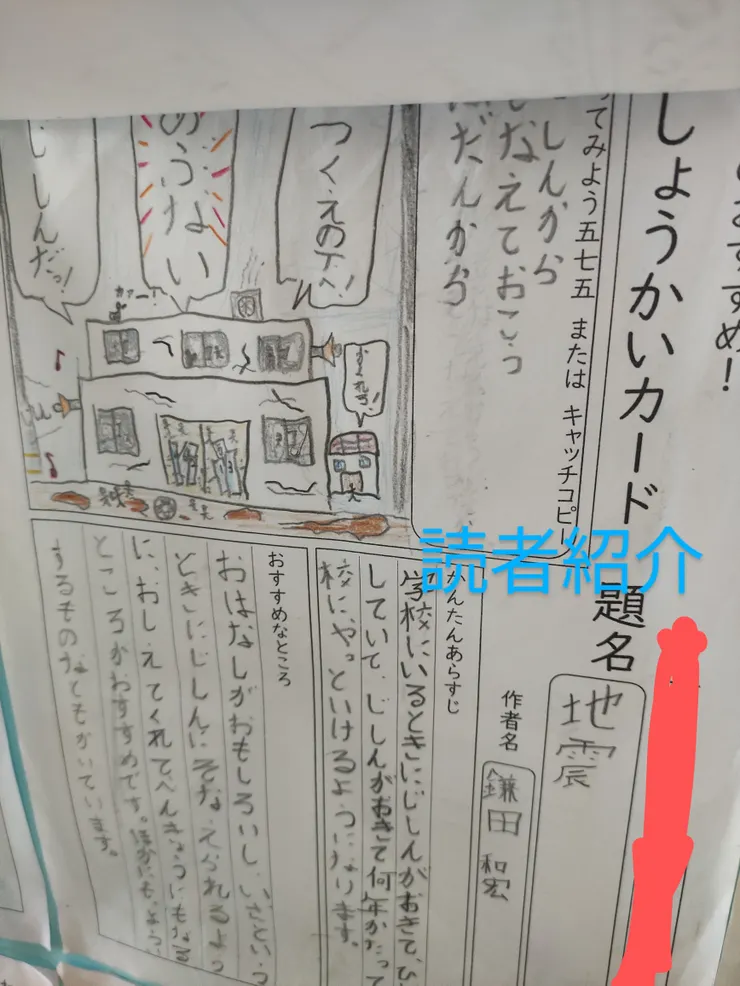 おすすめ!
しょうかいカード
題名
地震
作者名
鎌田 和宏
ってみよう五七五 または キャッチコピー
しんから
なえておこっ
だんから
つくえの下へ!
のうない
じしんだっ!
カァー!
かくれろ!
読者紹介
かんたんあらすじ
学校にいるときにじしんがおきて、ひ
していて、じしんがおきて何年かたって
校に、やっといけるようになります。
おすすめなところ
おはなしがおもしろいし、いざという
ときにじしんにそなえられるよう
に、おしえてくれて、べんきょうにもなる
ところがおすすめです。ほかにも、よう
するものなどもかいています。